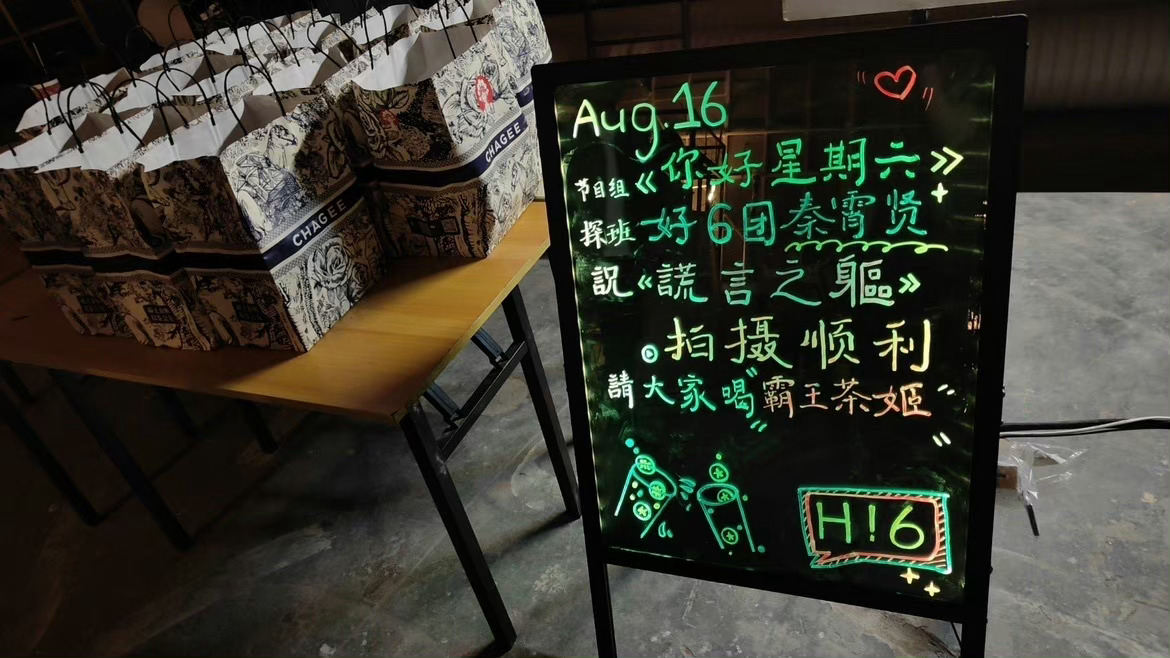 CHAGEE
CHAGEE
Aug.16
节目组《你好星期六》
探班 好6团秦霄贤
祝《謊言之軀》
拍摄顺利
請大家喝"霸王茶姬"
H!6